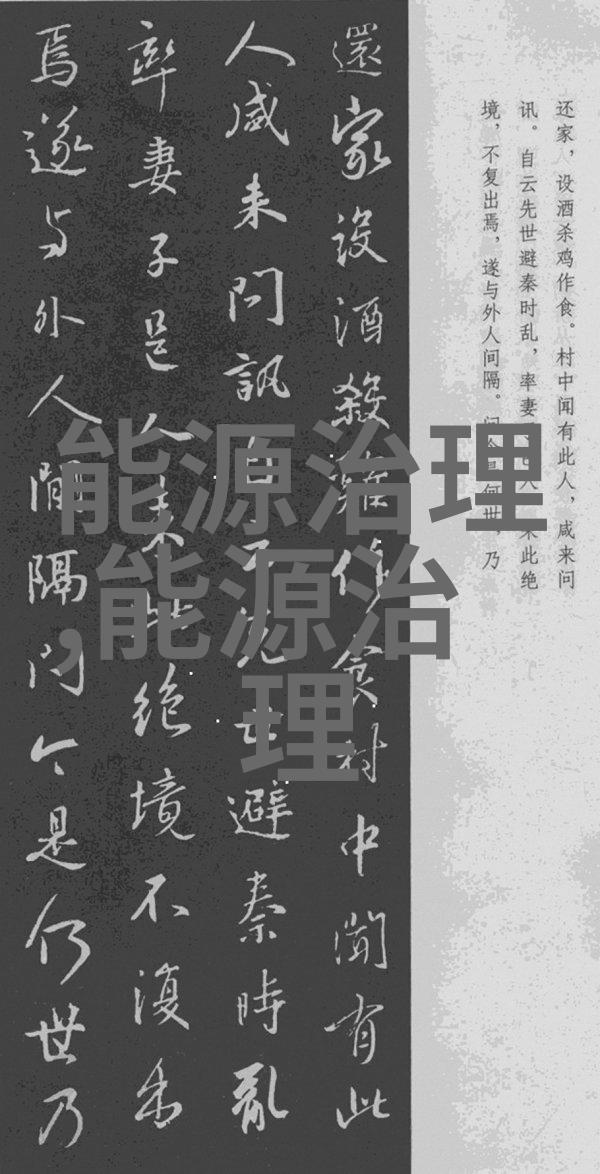 还家，设酒杀鸡作食。村中闻有此人，咸来问
讯。自云先世避秦时乱，率妻子邑人来此绝
境，不复出焉，遂与外人间隔。问今是何世，乃
還家設酒殺雞作食村中聞有此
人咸来問訊自云先世避秦時亂
率妻子邑人来此絶境不復出
焉遂与外人間隔問今是何世乃
能源治理
,能源治
理